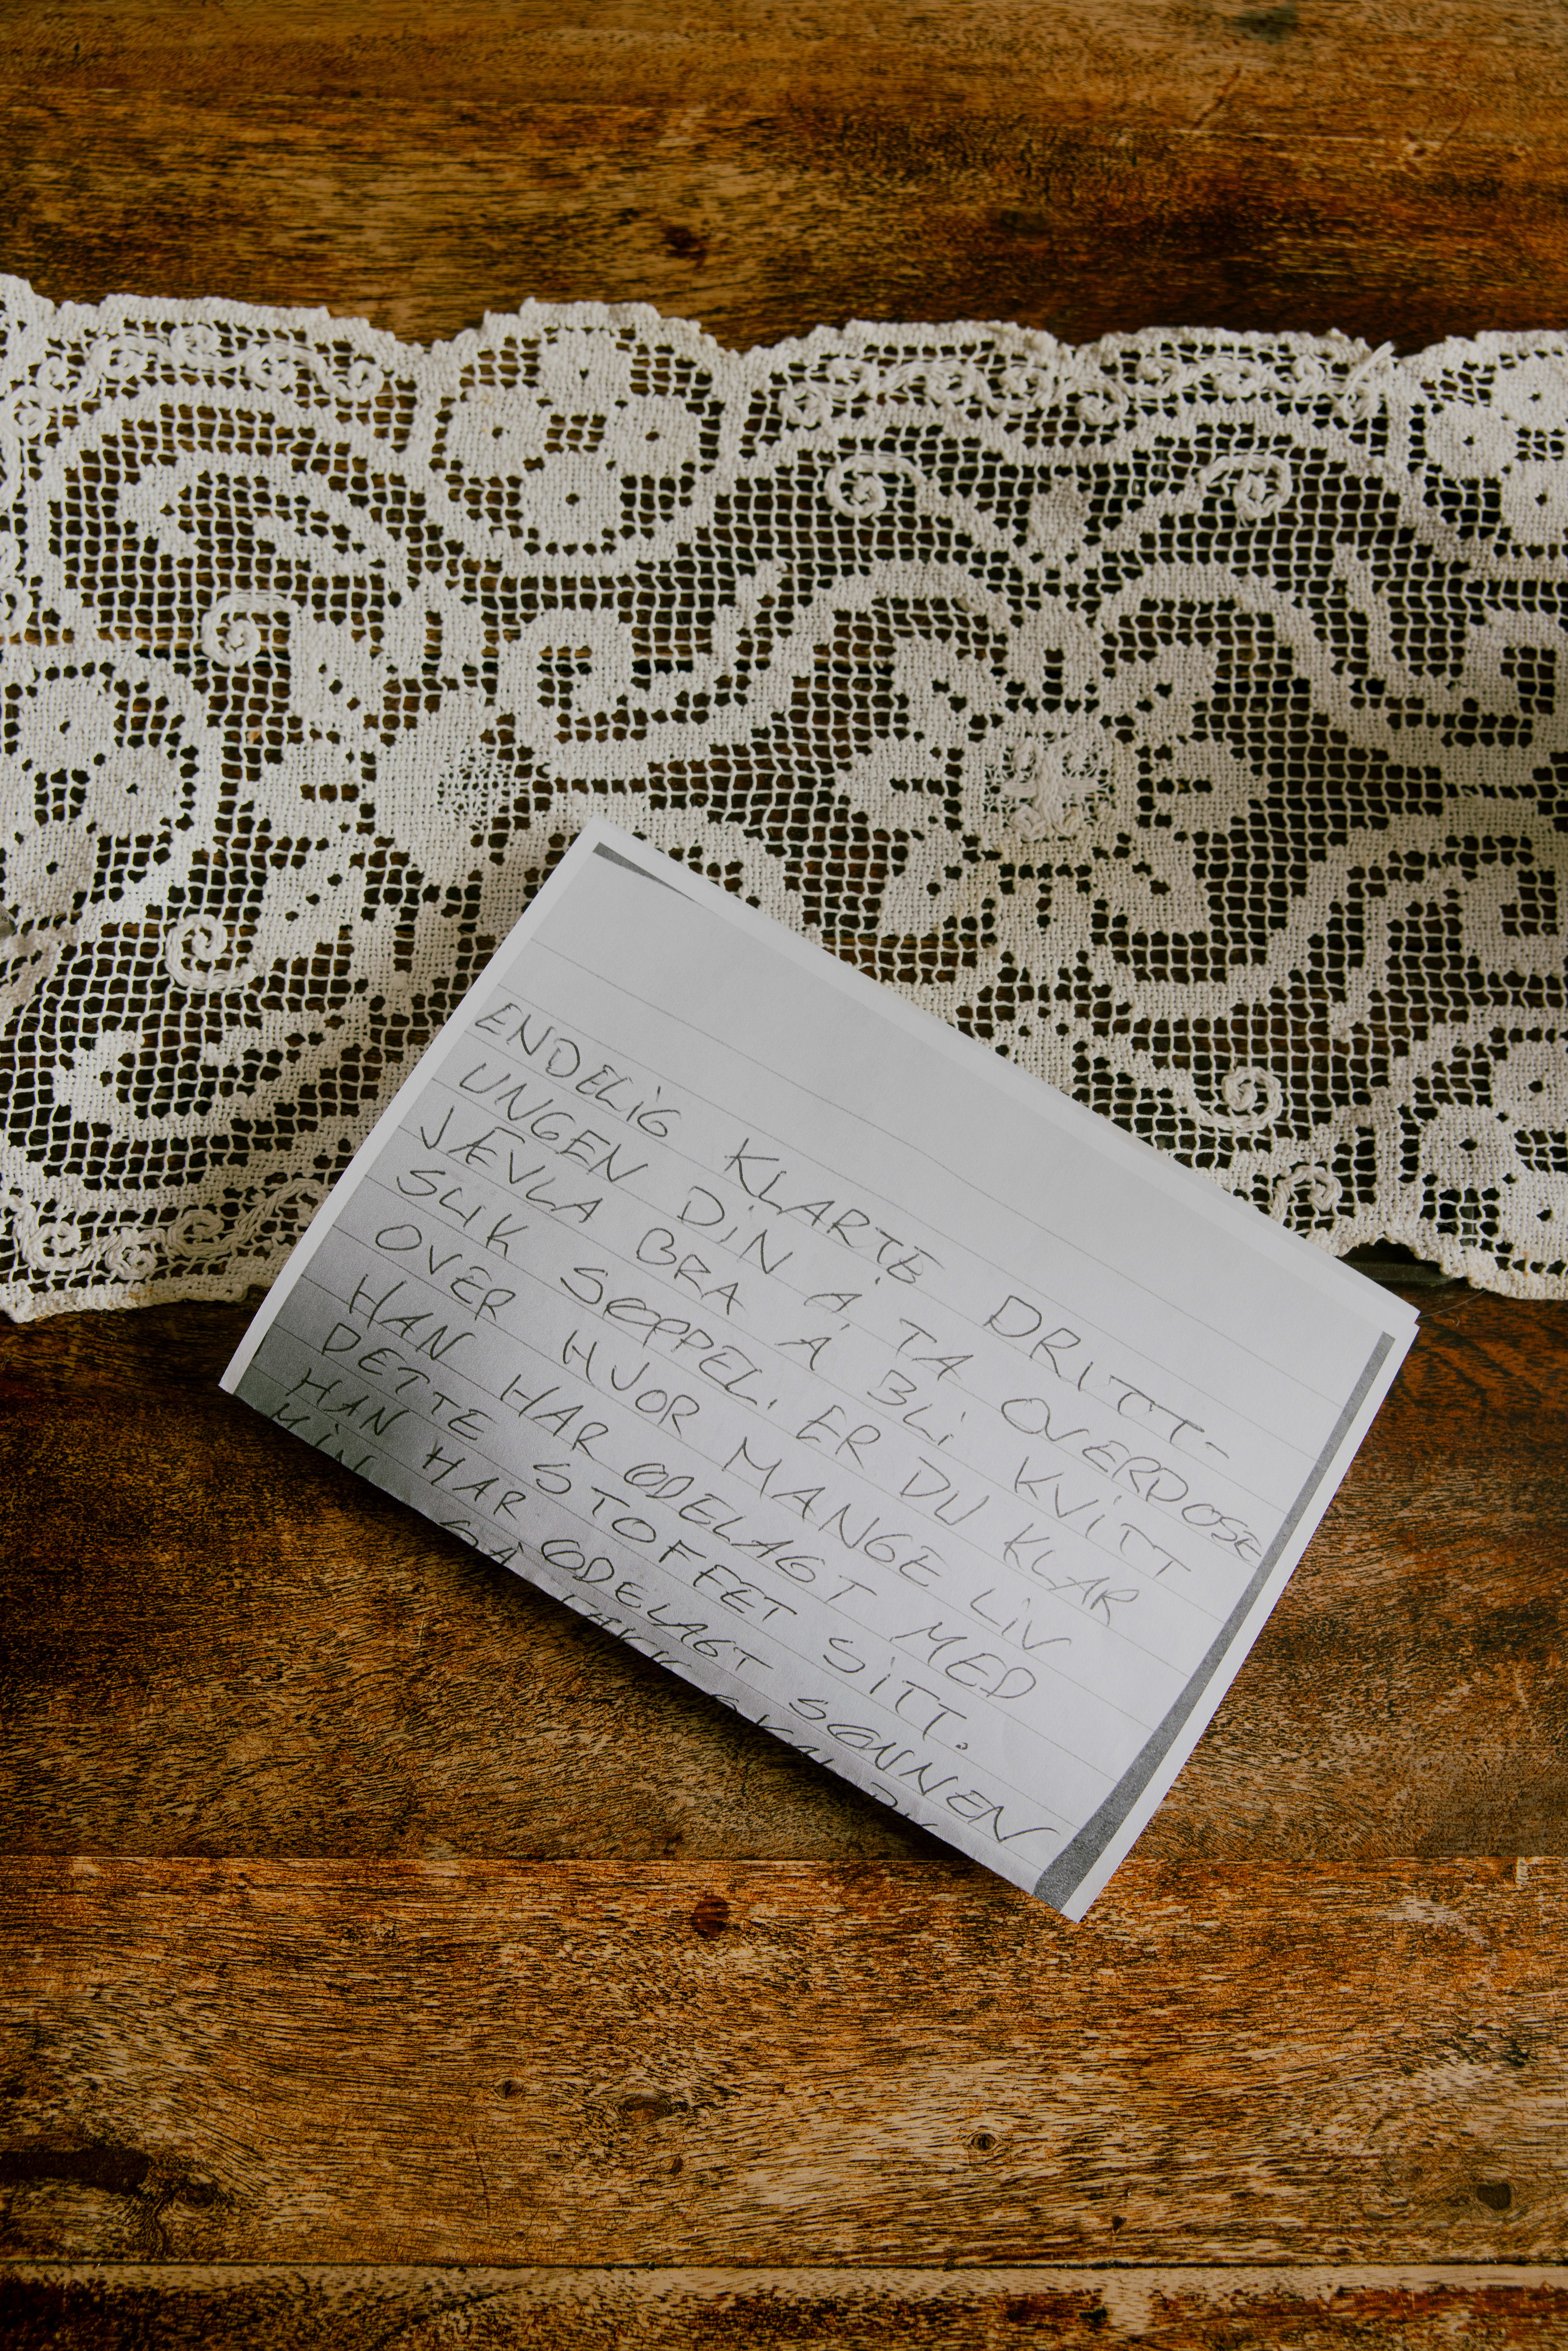 ENDELIG KLARTE DRITT-
UNGEN DIN Å TA OVERDOSE
JÆVLA BRA Å BLI KVITT
SLIK SØPPEL. ER DU KLAR
OVER HVOR MANGE LIV
HAN HAR ØDELAGT MED
DETTE STOFFET SITT.
HAN HAR ØDELAGT SØNNEN
MIN